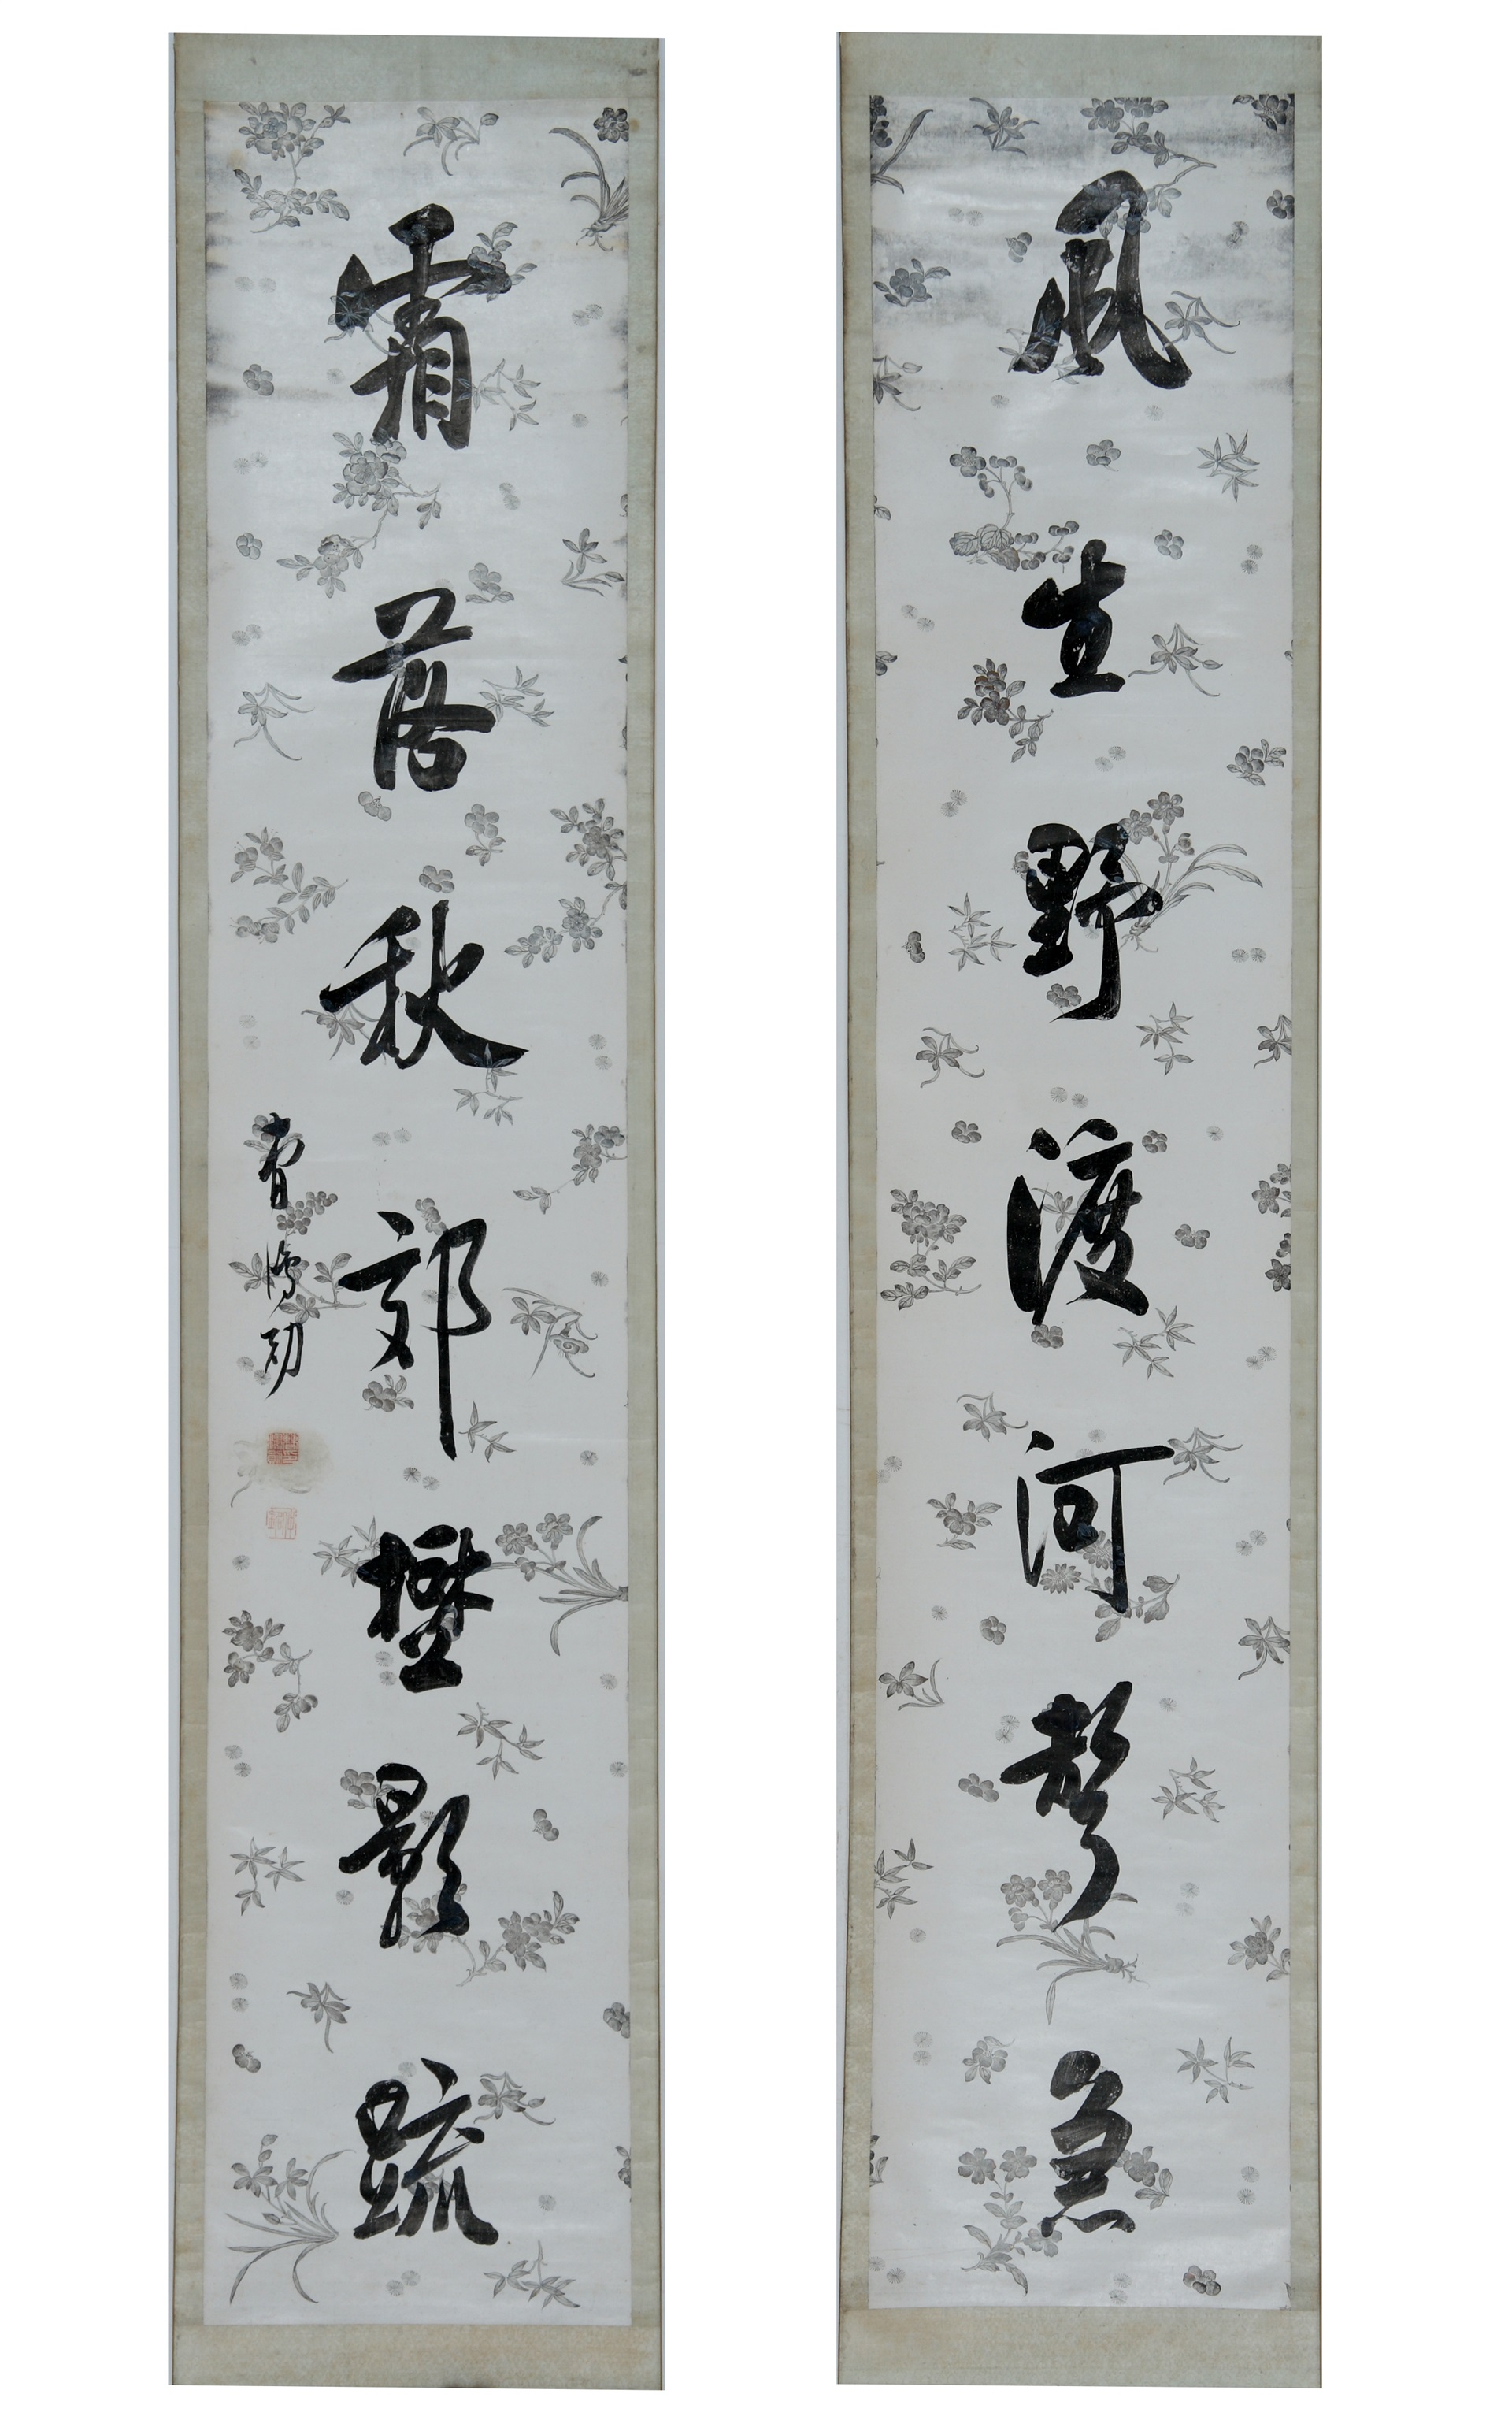 風生野渡河聲急
霜落秋郊樹影疏
曹鴻勛